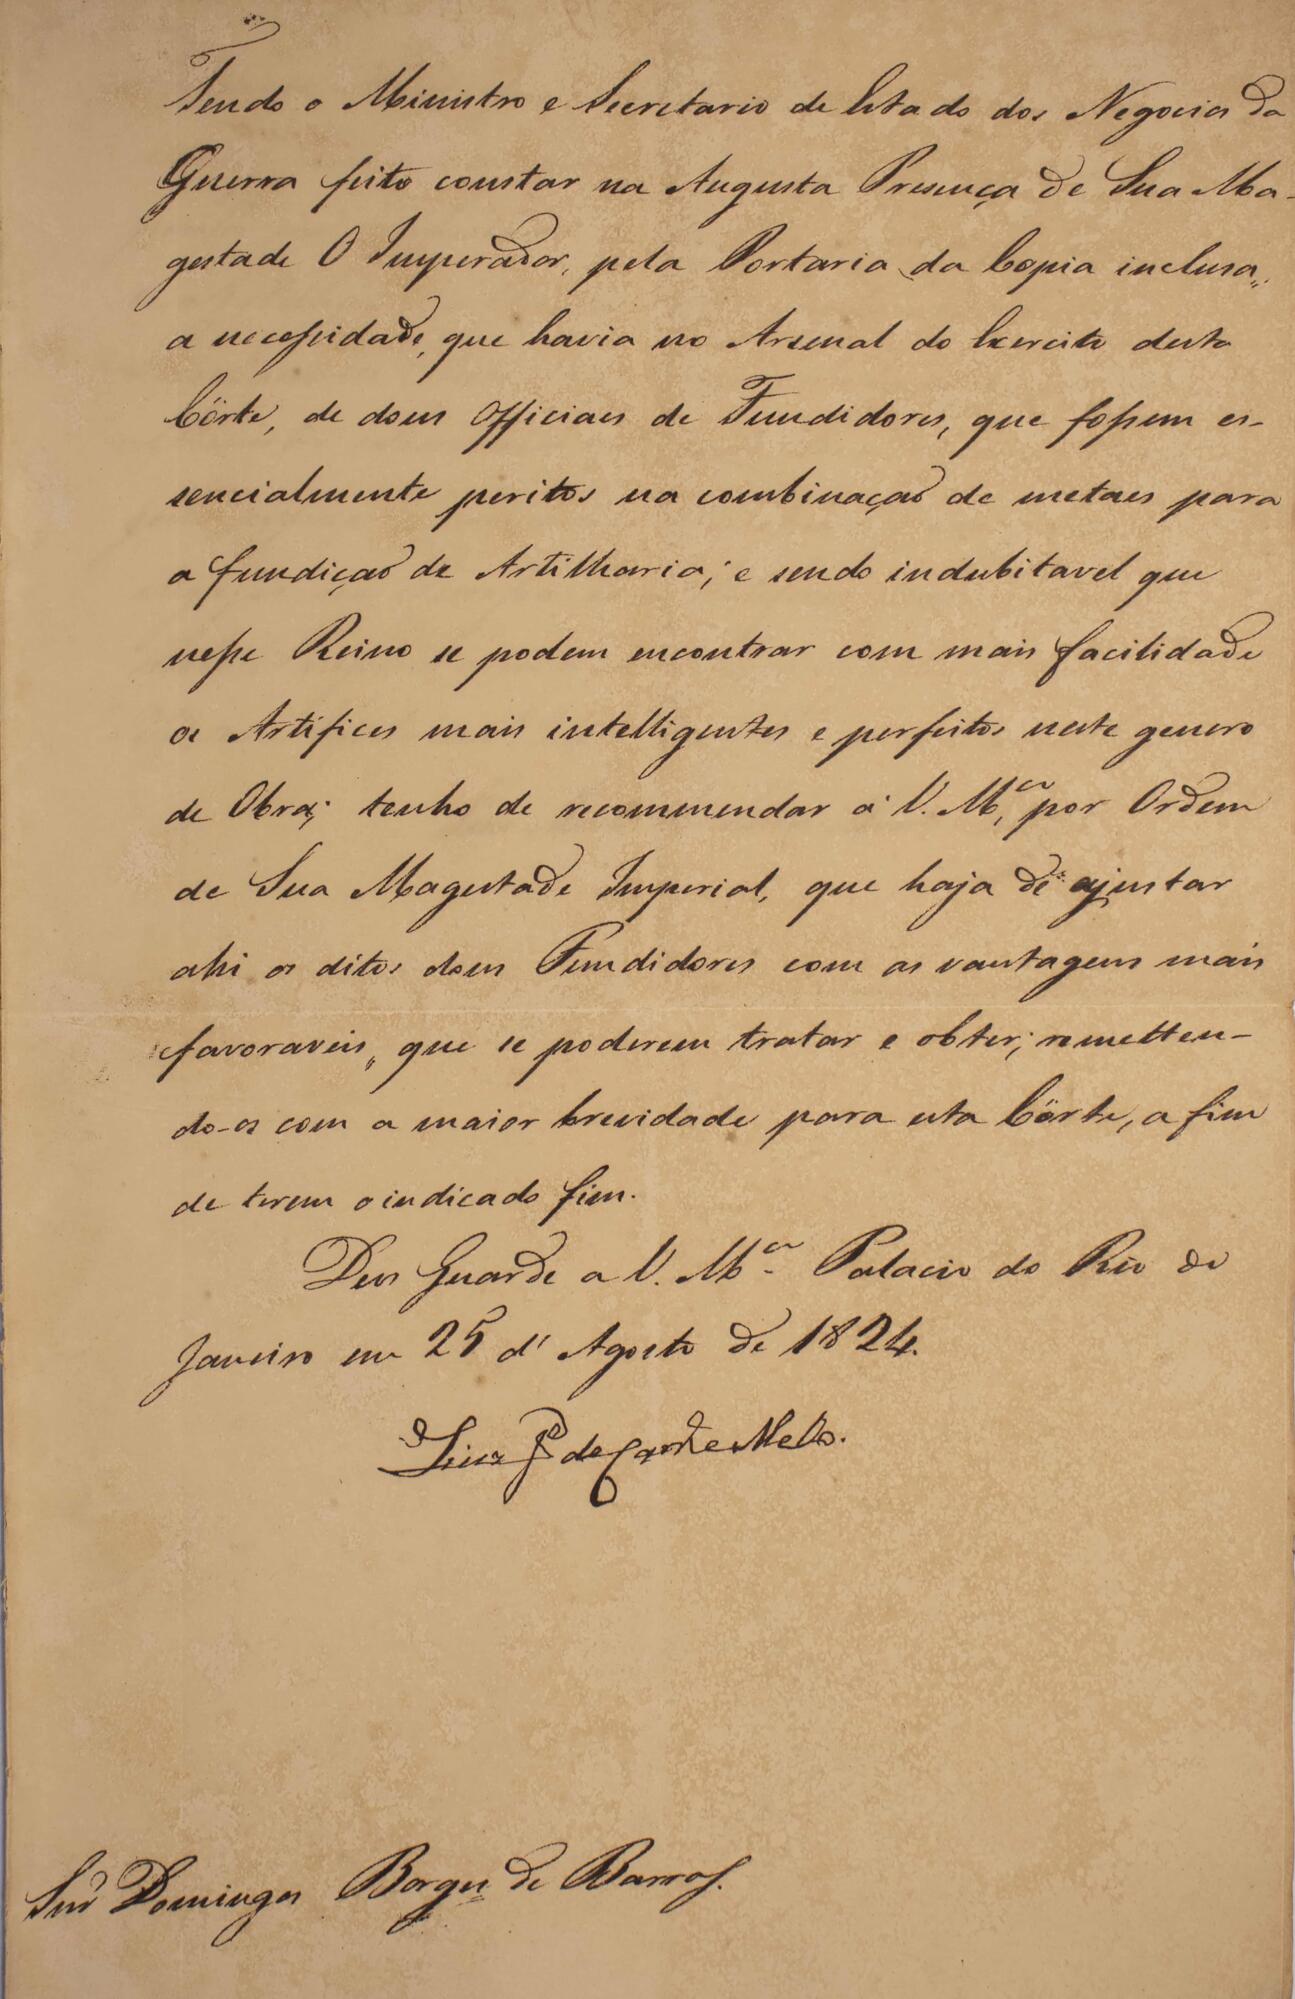 Tendo o Ministro e Secretario de Estado dos Negocios da
Guerra feito constar na Augusta Presença de Sua Ma-
gestade O Imperador, pela Portaria da Copia inclusa,,
a necessidade, que havia no Arsenal do Exercito desta
Côrte, de dous Officiaes de Fundidores, que fossem es-
sencialmente peritos na combinação de metaes para
a fundição de Artilharia; e sendo indubitavel que
nesse Reino se podem encontrar com mais facilidade
os Artifices mais intelligentes e perfeitos neste genero
de Obra; tenho de recommendar á V. M.ce, por Ordem
de Sua Magestade Imperial, que haja de ajustar
ahi os ditos dous Fundidores com as vantagens mais
favoraveis,, que se poderem tratar e obter; remetten-
do-os com a maior brevidade para esta Côrte, a fim
de terem o indicado fim.
Deus Guarde a V. M.ce Palacio do Rio de
Janeiro em 25 d' Agosto de 1824.
Luiz Jé de Carvº e Mello.
Snr Domingos Borges de Barros.